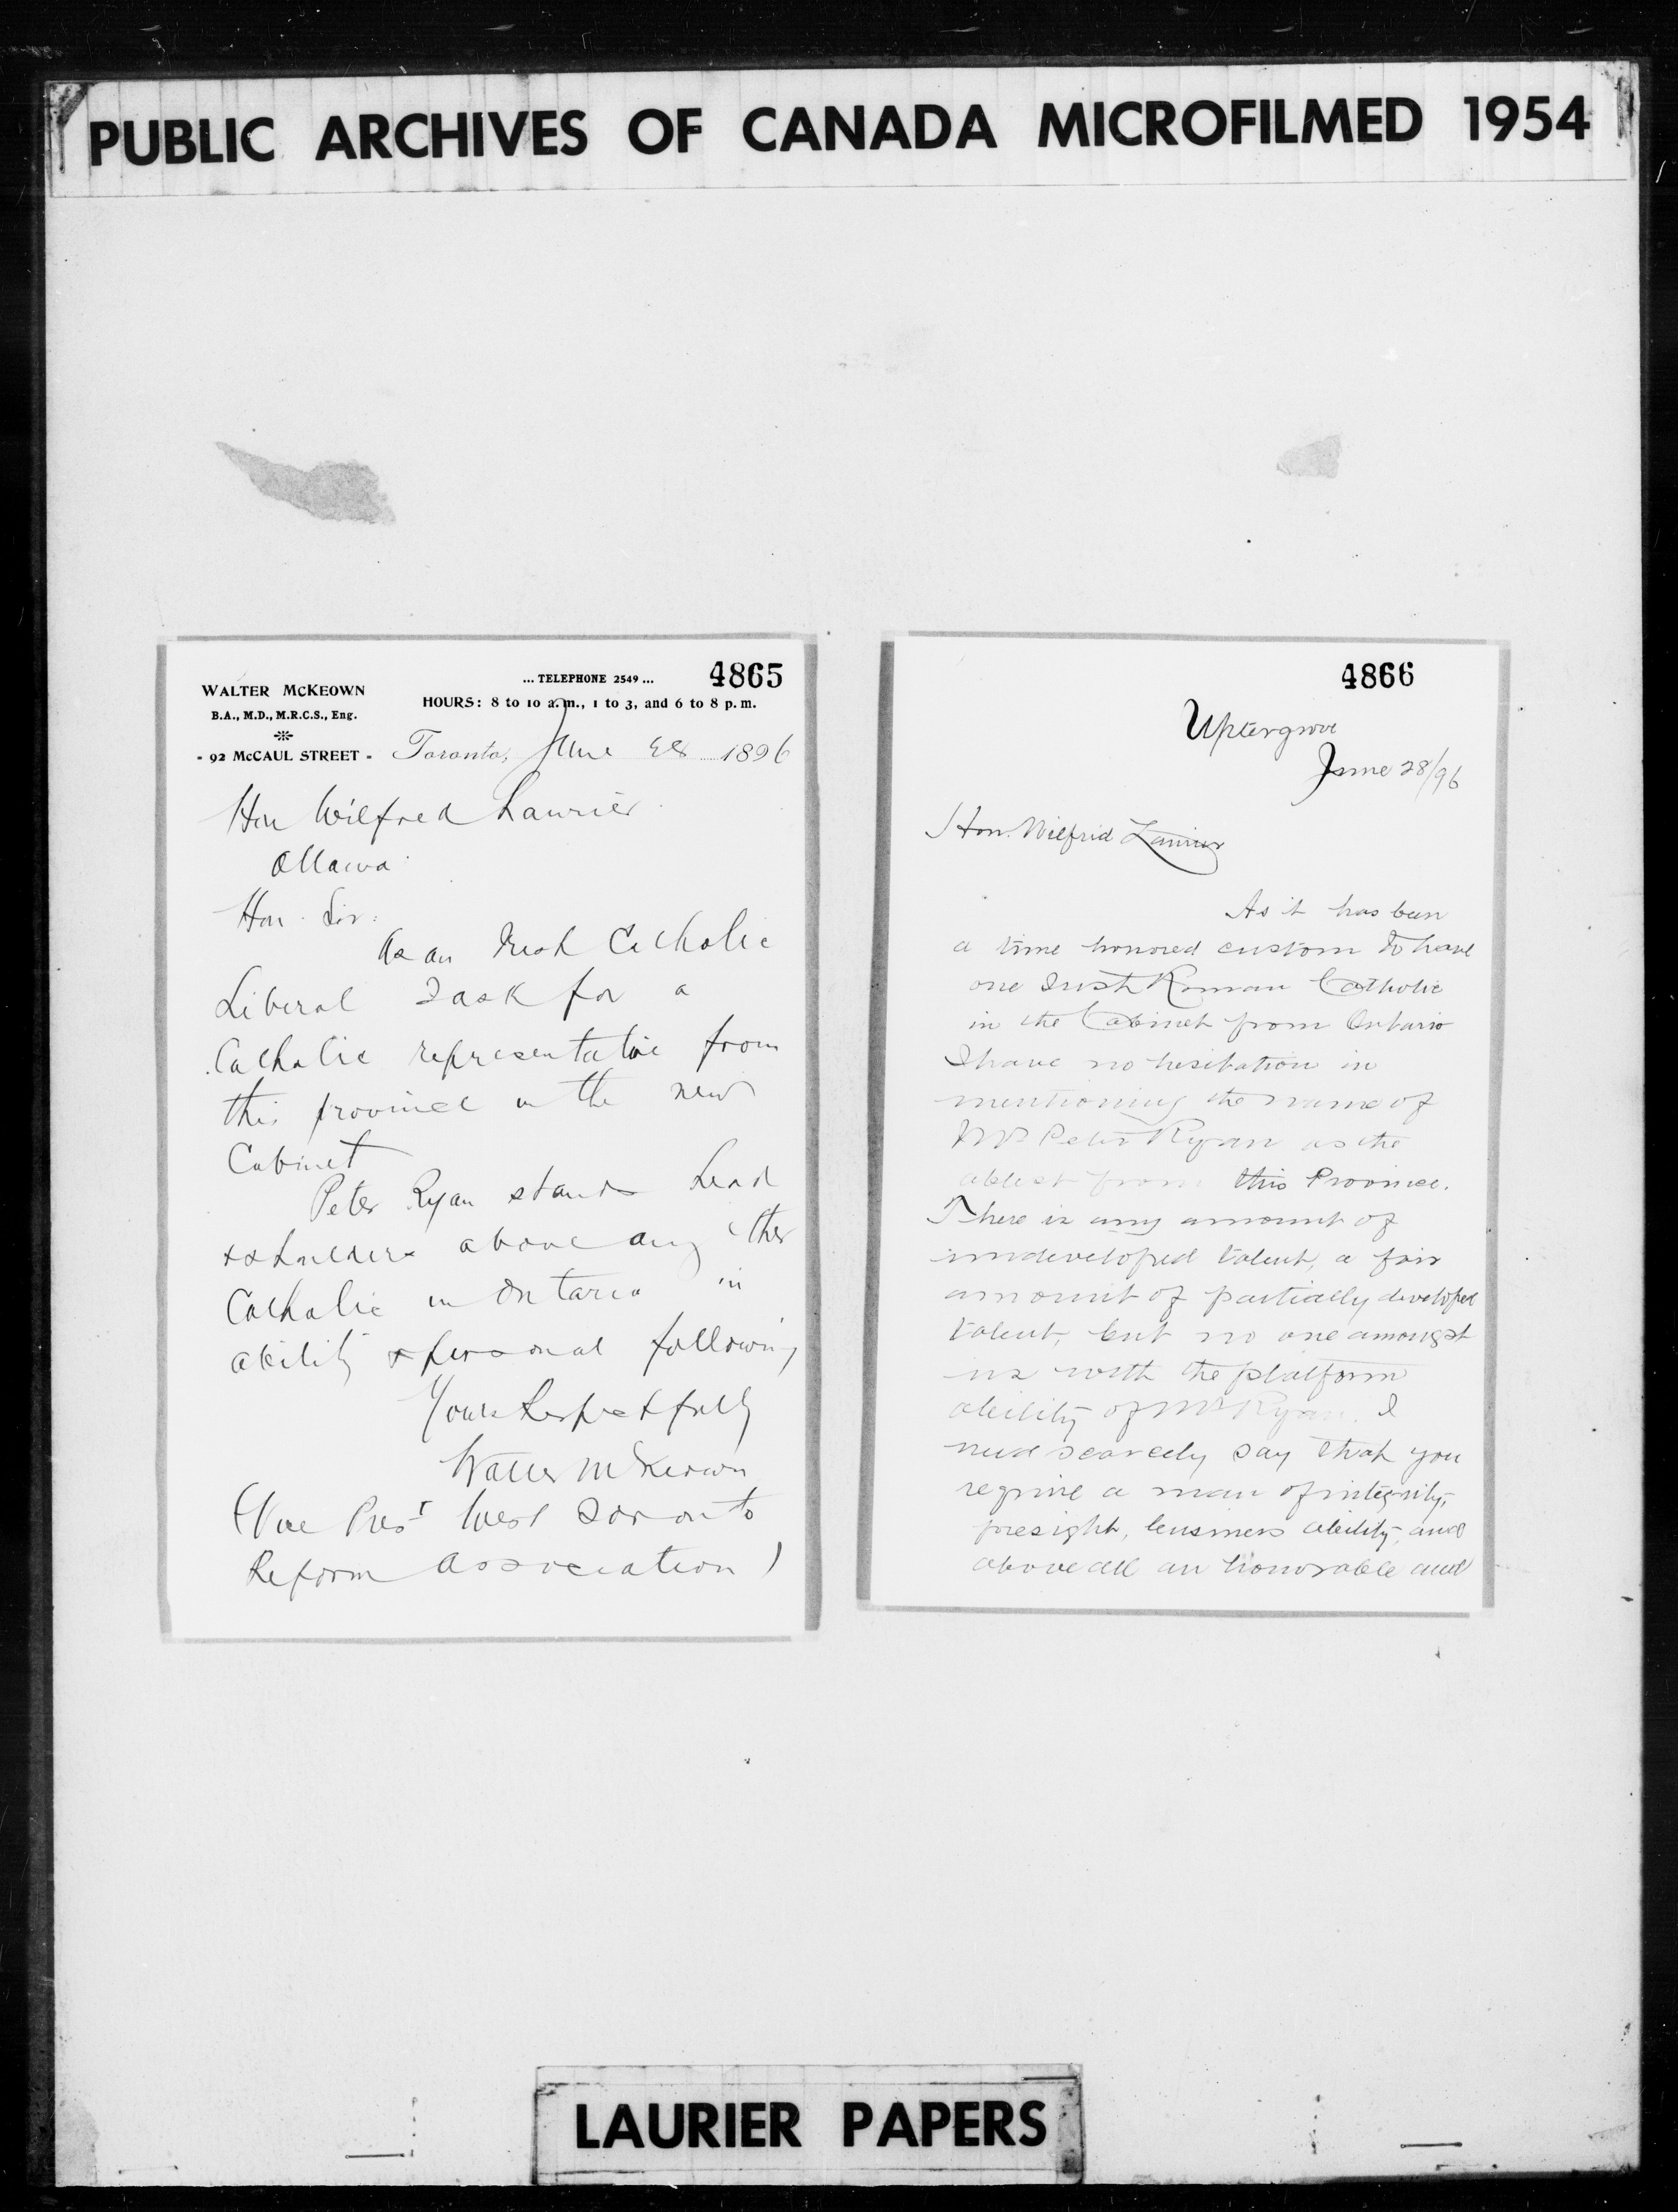 PUBLIC ARCHIVES OF CANADA MICROFILMED 1954
4865
WALTER McKEOWN
B.A., M.D., M.R.C.S., Eng.
- 92 McCAUL STREET -
... TELEPHONE 2549 ...
HOURS: 8 to 10 a.m., 1 to 3, and 6 to 8 p.m.
Toronto, June 28 1896
Hon Wilfred Laurier
Ottawa
Hon. Sir:
As an Irish Catholic
Liberal I ask for a
Catholic representative from
this province in the new
Cabinet
Peter Ryan stands head
& shoulders above any other
Catholic in Ontario in
ability & personal following
Yours Respectfully
Walter McKeown
(Vice Prest West Toronto
Reform Association)
4866
Uptergrove
June 28/96
Hon. Wilfrid Laurier
As it has been
a time honored custom to have
one Irish Roman Catholic
in the Cabinet from Ontario
I have no hesitation in
mentioning the name of
Mr Peter Ryan as the
ablest from this Province.
There is any amount of
undeveloped talent, a fair
amount of partially developed
talent, but no one amongst
us with the platform
ability of Mr Ryan. I
need scarcely say that you
require a man of integrity,
foresight, business ability, and
above all an honorable and
LAURIER PAPERS